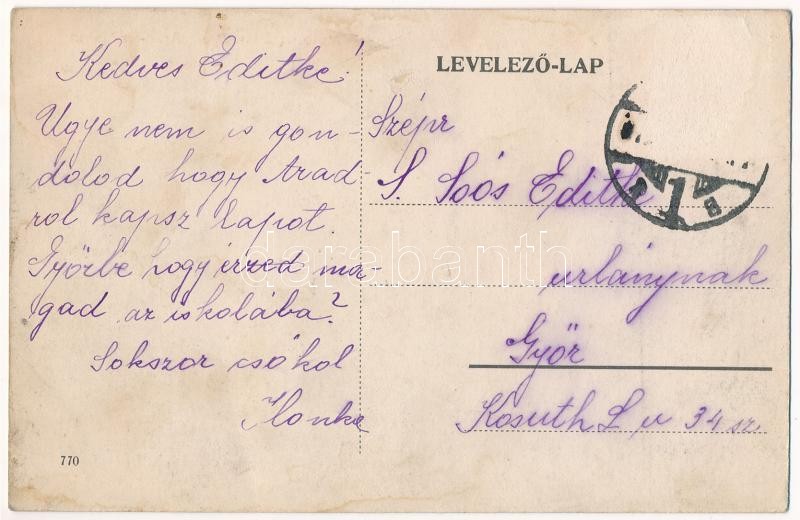 Kedves Editke!
Ugye nem is gon-
dolod hogy Arad-
rol kapsz lapot.
Győrbe hogy érzed ma-
gad az iskolába?
Sokszor csókol
Ilonka
770
LEVELEZŐ-LAP
S. Soós Editke
urlánynak
Győr
Kosuth L u 34 sz.
darabanth
1
B